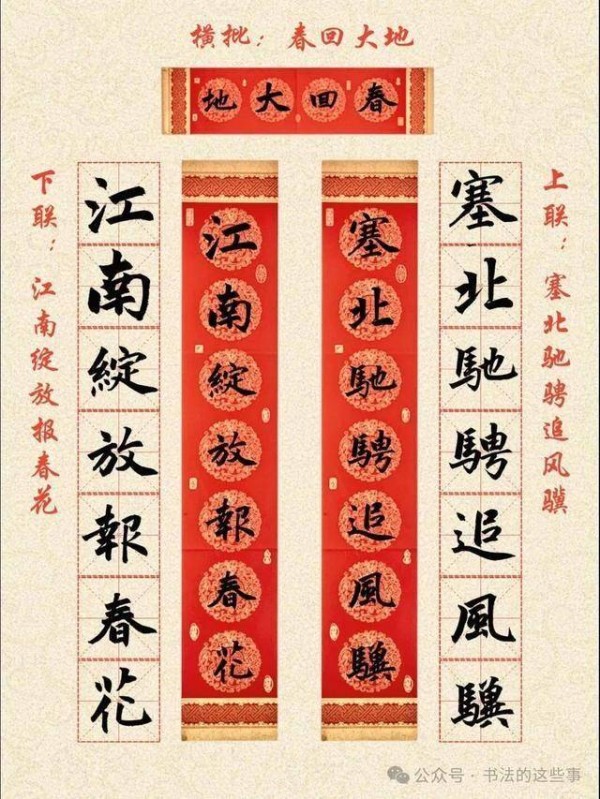 横批：春回大地
春回大地
上联：塞北驰骋追风骥
塞北馳騁追風驥
塞北馳騁追風驥
江南綻放報春花
江南綻放報春花
下联：江南绽放报春花
公众号·书法的这些事